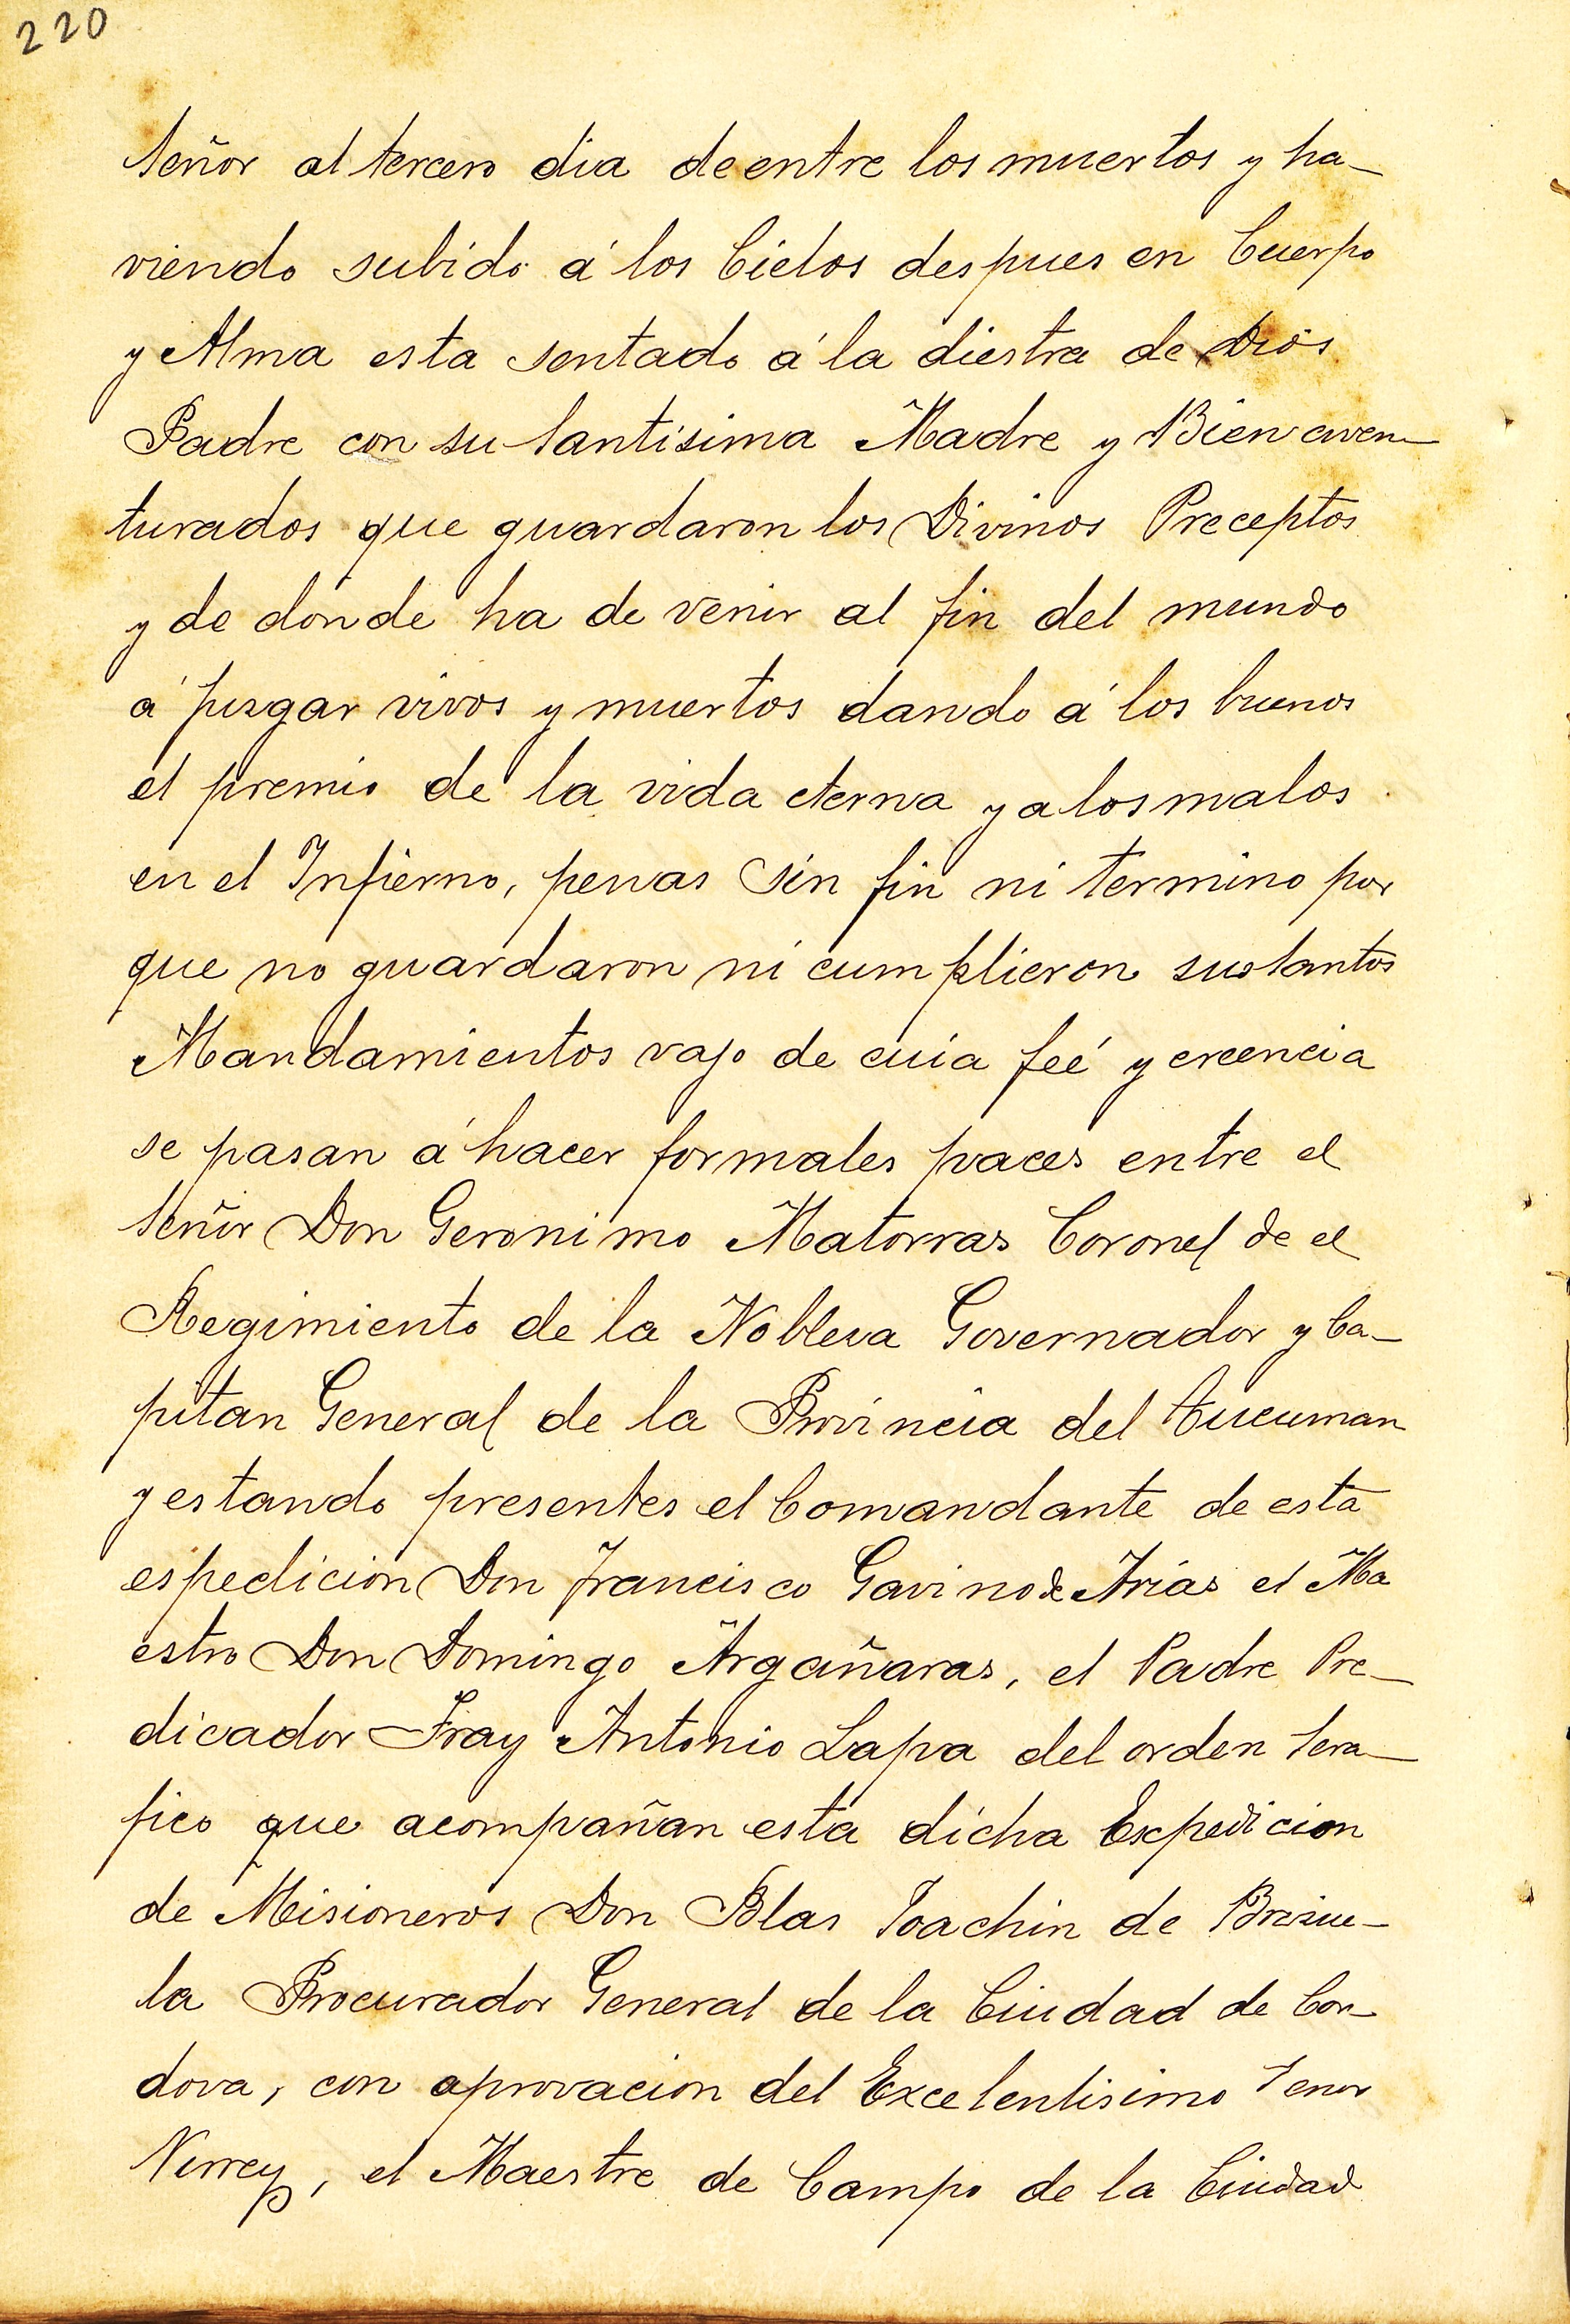 220
Señor al tercero dia de entre los muertos y ha-
viendo subido á los Cielos despues en Cuerpo
y Alma esta sentado á la diestra de Dios
Padre con su Santisima Madre y Bienaven-
turados que guardaron los Divinos Preceptos
y de donde ha de venir al fin del mundo
á jusgar vivos y muertos dando á los buenos
el premio de la vida eterna y a los malos
en el Infierno, penas sin fin ni termino por
que no guardaron ni cumplieron sus Santos
Mandamientos vajo de cuia feé y creencia
se pasan á hacer formales paces entre el
Señor Don Geronimo Matorras Coronel de el
Regimiento de la Noblesa Governador y Ca-
pitan General de la Provincia del Tucuman
y estando presentes el Comandante de esta
espedicion Don Francisco Gavino de Arias el Ma
estro Don Domingo Argañaras, el Padre Pre-
dicador Fray Antonio Lapa del orden Sera-
fico que acompañan esta dicha Expedicion
de Misioneros Don Blas Joachin de Brisue-
la Procurador General de la Ciudad de Cor-
dova, con aprovacion del Excelentisimo Senor
Virrey, el Maestre de Campo de la Ciudad